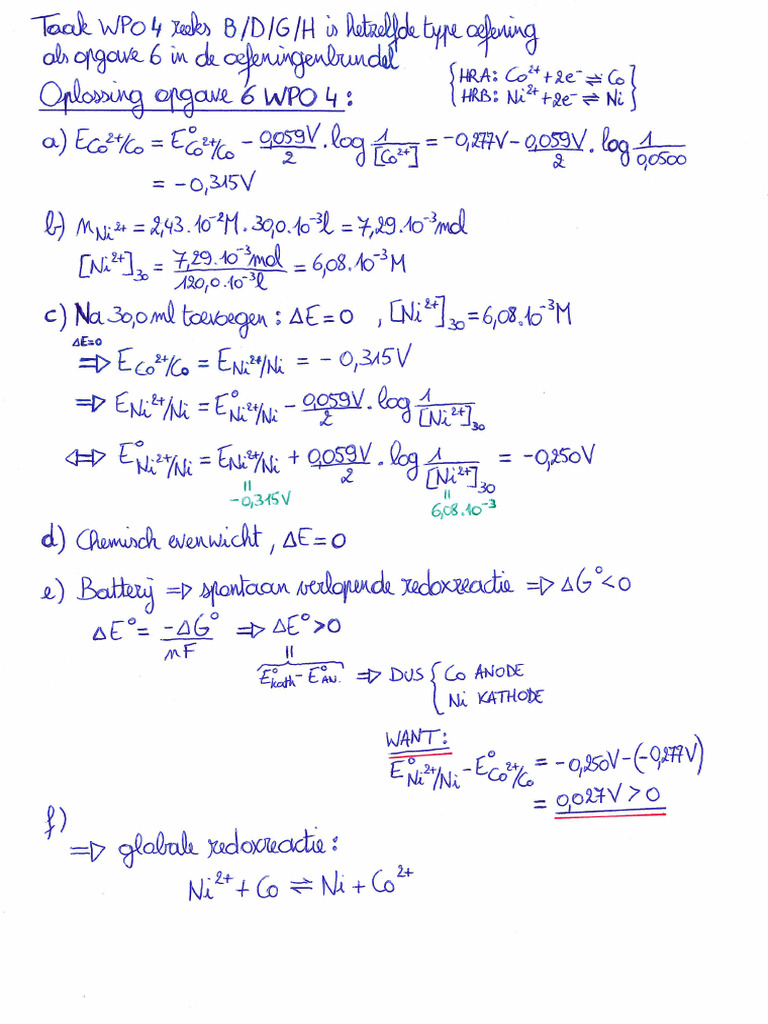 Taak WPO 4 reeks B/D/G/H is hetzelfde type oefening
als opgave 6 in de oefeningenbundel
{HRA: Co²⁺ + 2e⁻ ⇌ Co}
{HRB: Ni²⁺ + 2e⁻ ⇌ Ni}
Oplossing opgave 6 WPO 4:
a) E_Co²⁺/Co = E°_Co²⁺/Co - 0,059V/2 . log 1/[Co²⁺] = -0,277V - 0,059V/2 . log 1/0,0500
= -0,315V
b) n_Ni²⁺ = 2,43.10⁻²M . 30,0.10⁻³l = 7,29.10⁻³mol
[Ni²⁺]₃₀ = 7,29.10⁻³mol/120,0.10⁻³l = 6,08.10⁻³M
c) Na 30,0ml toevoegen: ΔE=0 , [Ni²⁺]₃₀ = 6,08.10⁻³M
ΔE=0
⇒ E_Co²⁺/Co = E_Ni²⁺/Ni = -0,315V
⇒ E_Ni²⁺/Ni = E°_Ni²⁺/Ni - 0,059V/2 . log 1/[Ni²⁺]₃₀
⇔ E°_Ni²⁺/Ni = E_Ni²⁺/Ni + 0,059V/2 . log 1/[Ni²⁺]₃₀ = -0,250V
= -0,315V = 6,08.10⁻³
d) Chemisch evenwicht, ΔE=0
e) Batterij ⇒ spontaan verlopende redoxreactie ⇒ ΔG°<0
ΔE° = -ΔG°/nF ⇒ ΔE°>0
=
E°_kath - E°_AN. ⇒ DUS { Co ANODE
Ni KATHODE
WANT:
E°_Ni²⁺/Ni - E°_Co²⁺/Co = -0,250V - (-0,277V)
= 0,027V > 0
f)
⇒ globale redoxreactie:
Ni²⁺ + Co ⇌ Ni + Co²⁺